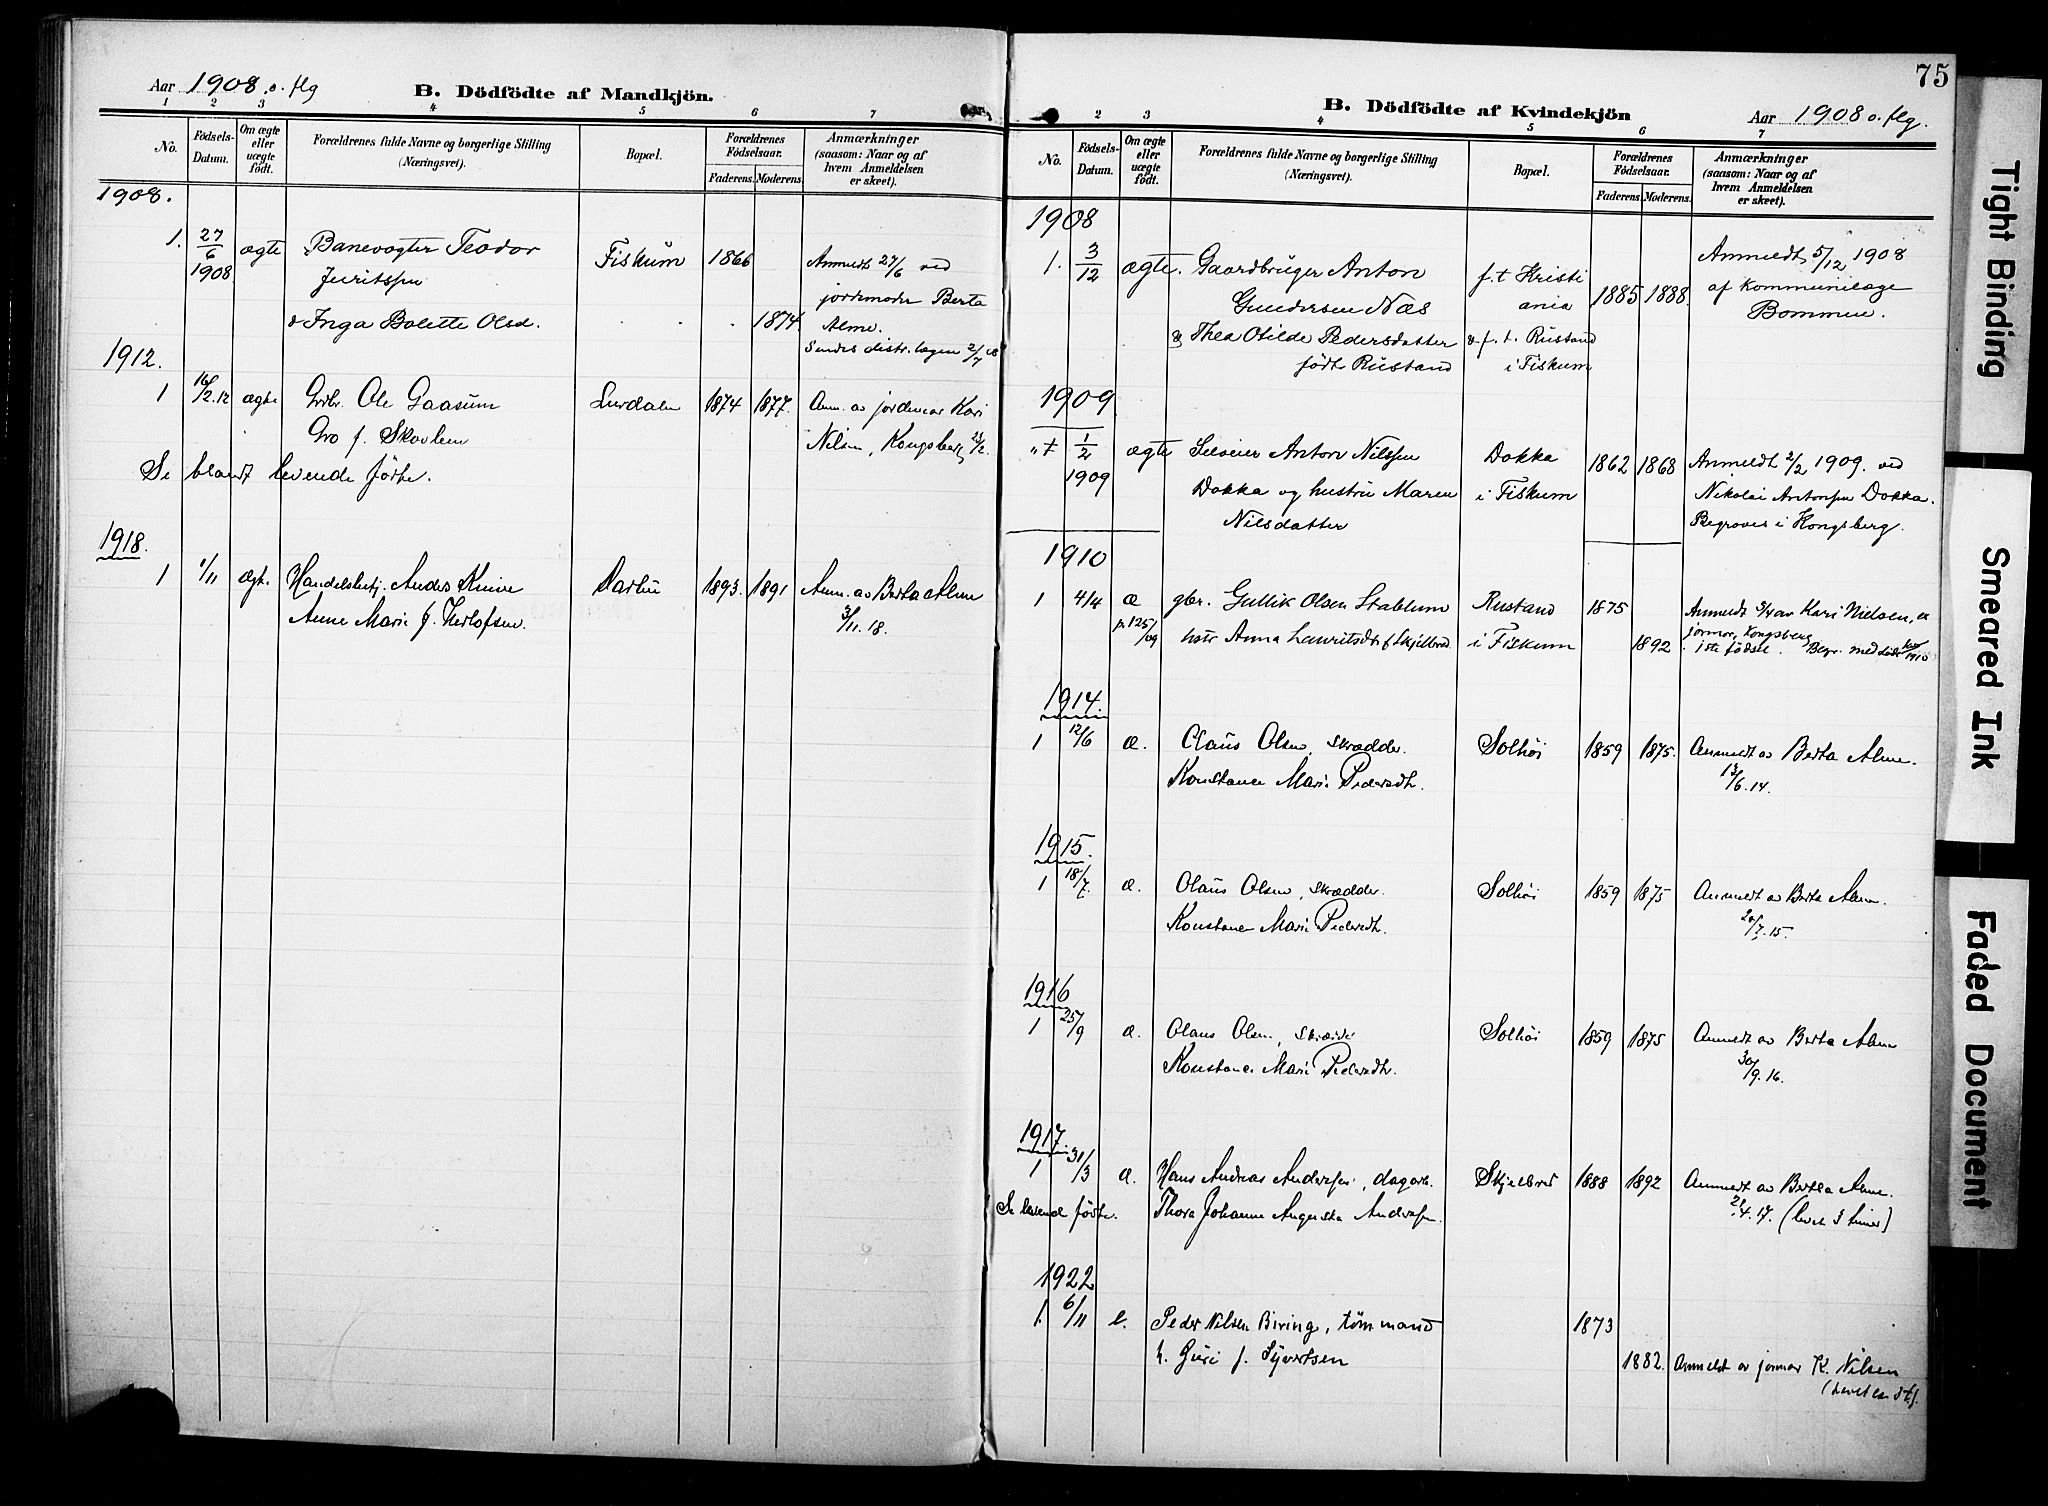 Aar 1908 o. flg
B. Dödfödte af Mandkjön.
1 2 3 4 5 6 7
No.
Födsels-Datum.
Om ægte eller uægte födt.
Forældrenes fulde Navne og borgerlige Stilling
(Næringsvei).
Bopæl.
Forældrenes Födselsaar.
Faderens. Moderens.
Anmærkninger
(saasom: Naar og af
hvem Anmeldelsen
er skeet).
1908.
1. 27/6 1908 ægte Banevogter Teodor Fiskum 1866 Anmeldt 27/6 ved
jordemoder Berta
& Inga Bolette Olsd. 1874 Alme.
distr. lægen 2/7 08
1912.
1 16/2.12 ægte Grbr. Ole Gaasum 1874 1877. Anm. av jordemor Kari
Gro f. Skovlien Nilsen, Kongsberg 23/2.
Se blandt levende fødte.
1918.
1 1/11 ægt. Handelsbetj. Anders Darbu 1893. 1891 Anm. av Berta Alme
Anne Marie f. Terlofsen. 3/11. 18.
75
B. Dödfödte af Kvindekjön
Aar 1908 o. flg.
2 3 4 5 6 7
No.
Födsels-Datum.
Om ægte eller uægte födt.
Forældrenes fulde Navne og borgerlige Stilling
(Næringsvei).
Bopæl.
Forældrenes Födselsaar.
Faderens. Moderens.
Anmærkninger
(saasom: Naar og af
hvem Anmeldelsen
er skeet).
1908
1. 3/12 ægte. Gaardbruger Anton f. t. Kristi 1885 1888. Anmeldt 5/12 1908
Gundersen Næs ania af kommunelæge
& Thea Otilde Pedersdatter & f. t. Rustand Bommen.
födt Rustand i Fiskum
1909
1/2 1909 ægte Selveier Anton Nilssen Dokka 1862 1868 Anmeldt 2/2 1909. ved
Dokka og hustru Maren i Fiskum Nikolai Antonsen Dokka.
Nilsdatter Begraves i Kongsberg.
1910
1 4/4 æ gbr. Gullik Olsen Stablum Rustand 1875 Anmeldt av Kari Nielsen, ex
hstr Anna Lauritsdt f Skjelbred i Fiskum 1892 jormor, Kongsberg
1ste födsel. Begr. med
1914.
1 12/6 æ. Olaus Olsen, Skrædder. Solhöi 1859 1875. Anmeldt av Berta Alme.
Konstance Marie Pedersdtr. 13/6.14.
1915.
1 18/7. æ. Olaus Olsen, Skrædder. Solhöi 1859 1875 Anmeldt av Berta Alme.
Konstance Marie Pedersdtr. 20/7.15.
1916
1 25/9 æ. Olaus Olsen, Solhöi 1859 1875 Anmeldt av Berta Alme
Konstance Marie Pedersdtr. 30/9.16.
1917.
1 31/3 æ. Hans Andreas Andersen, dagarb. Skjelbred 1888 1892 Anmeldt av Berta Alme.
Se levende fødte. Thora Johanne Augusta Andersen. 2/4.17. (levet 3 timer)
1922
1. 6/11 e. Peder Nilsen Biring, tömmand 1873
h. Guri f. Syvertsen 1882. Anmeldt av jormor K. Nilsen
Tight Binding
Smeared Ink
Faded Document